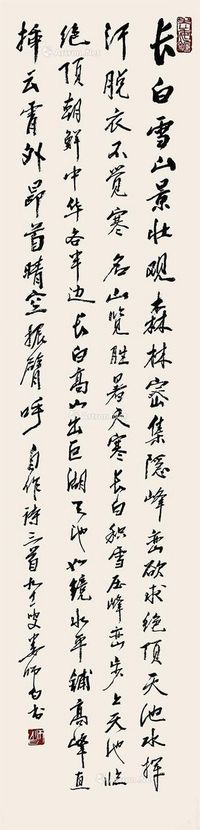 长白雪山景壮观森林密集隐峰峦欲求绝顶天池水挥
汗脱衣不觉寒名山览胜暑天寒长白积雪压峰峦步上天池临
绝顶朝鲜中华各半边长白高山出巨湖天池如镜水平铺高峰直
插云霄外昂首晴空振臂呼自作诗三首九十叟娄师白书